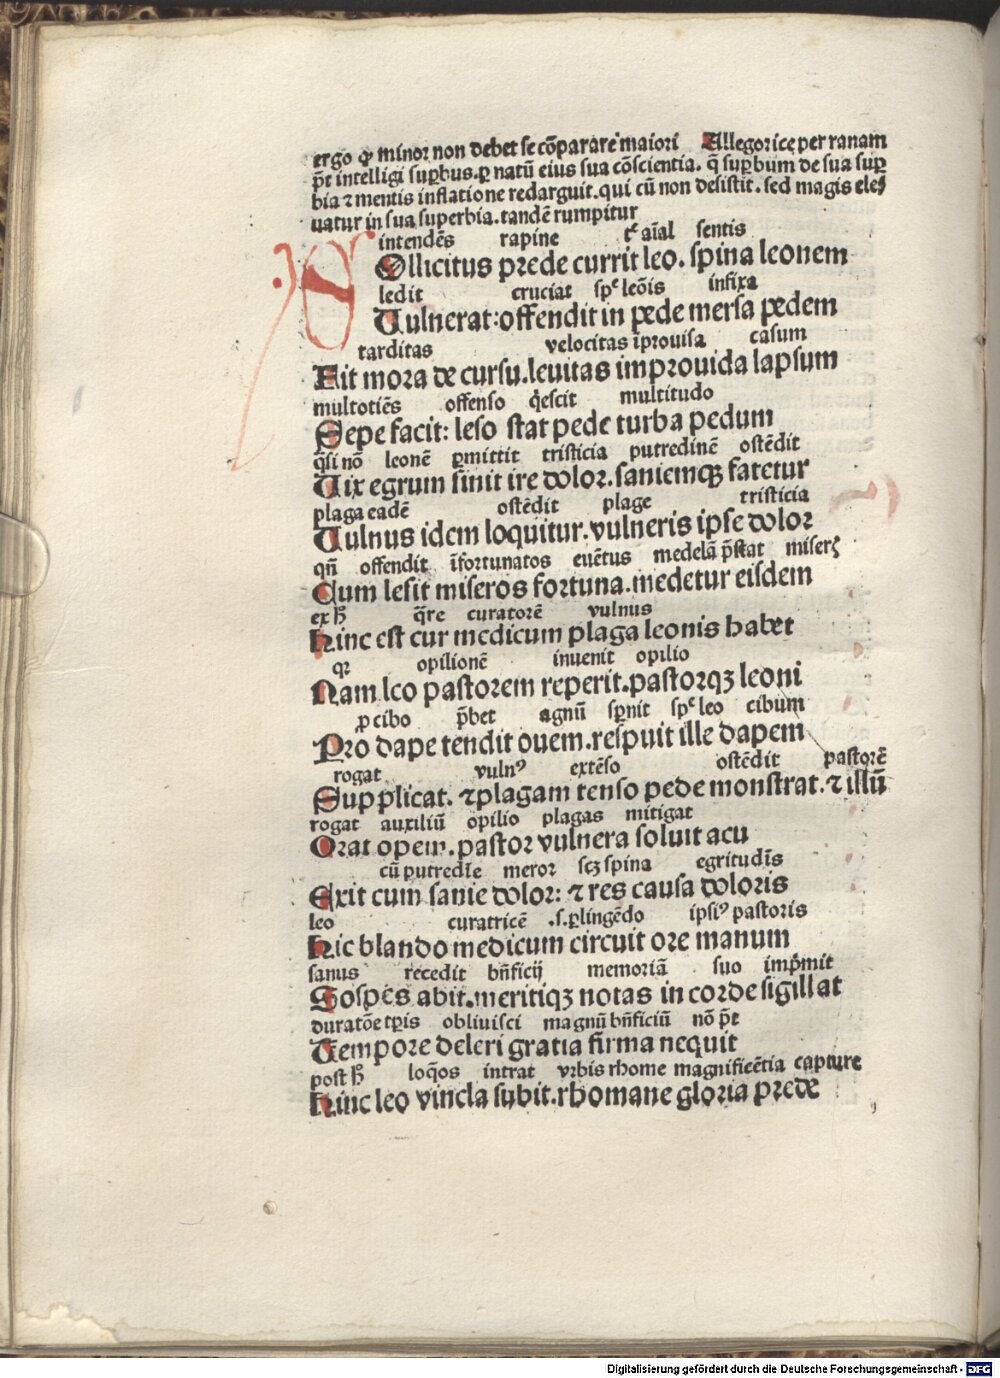 ergo ꝙ minor non debet se cōparare maiori Allegorice per ranam
p̄t intelligi suꝑbus. ꝑ natū eius sua cōscientia. q̄ suꝑbum de sua suꝑ
bia ⁊ mentis inflatione redarguit. qui cū non desistit. sed magis ele⸗
uatur in sua superbia. tandē rumpitur
intendēs rapine aīal sentis
Ollicitus prede currit leo. spina leonem
ledit cruciat leōis infixa
Uulnerat: offendit in pede mersa pedem
tarditas velocitas īprouisa casum
Fit mora de cursu. leuitas improuida lapsum
multotiēs offenso q̇escit multitudo
Sepe facit: leso stat pede turba pedum
q̄si nō leonē ꝑmittit tristicia putredinē ostēdit
Uix egrum sinit ire dolor. saniemqꝫ fatetur
plaga eadē ostēdit plage tristicia
Uulnus idem loquitur. vulneris ipse dolor
qn̄ offendit īfortunatos euētus medelā p̄stat
Cum lesit miseros fortuna. medetur eisdem
ex q̄re curatorē vulnus
Hinc est cur medicum plaga leonis habet
qꝛ opilionē inuenit opilio
Nam leo pastorem reperit. pastorqꝫ leoni
ꝓ cibo p̄bet agnū leo cibum
Pro dape tendit ouem. respuit ille dapem
rogat vulnꝰ extēso ostēdit pastorē
Supplicat. ⁊ plagam tenso pede monstrat. ⁊ illū
rogat auxiliū opilio plagas mitigat
Orat opem. pastor vulnera soluit acu
cū putredīe meror scꝫ spina egritudīs
Exit cum sanie dolor: ⁊ res causa doloris
leo curatricē .s. ꝑlingēdo ipsiꝰ pastoris
Hic blando medicum circuit ore manum
sanus recedit bn̄ficij memoriā suo imp̄mit
Sospes abit. meritiqꝫ notas in corde sigillat
duratōe tꝑis obliuisci magnū bn̄ficiū nō p̄t
Tempore deleri gratia firma nequit
post intrat vrbis rhome magnificētia capture
Hinc leo vincla subit. rhomane gloria prede
Digitalisierung gefördert durch die Deutsche Forschungsgemeinschaft - DFG